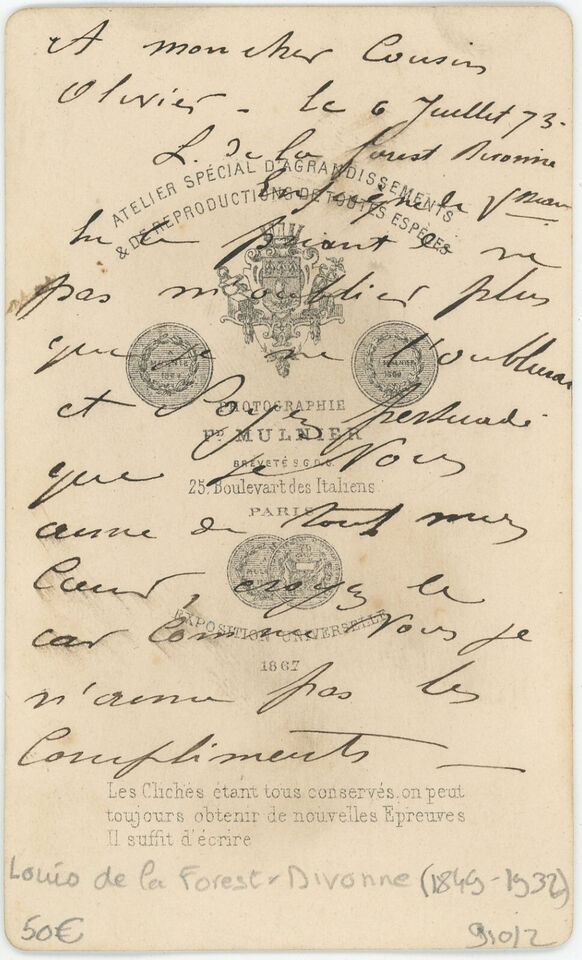 A mon cher Cousin
Olivier - le 6 Juillet 73.
L. de la forest Divonne
ATELIER SPÉCIAL D'AGRANDISSEMENTS
& DE REPRODUCTIONS DE TOUTES ESPÈCES
Enseigne de Vseau
en le priant de ne
pas m'oublier plus
que je ne l'oublierai
et Soyez persuadé
PHOTOGRAPHIE
Fd MULNIER
BREVETÉ S.G.D.G.
que je Vous
25, Boulevart des Italiens
PARIS
aime de tout mon
Cœur, croyez le
EXPOSITION UNIVERSELLE
car Comme Vous je
1867
n'aime pas les
Compliments —
Les Clichés étant tous conservés, on peut
toujours obtenir de nouvelles Epreuves
Il suffit d'écrire
Louis de la Forest-Divonne (1849-1932)
50€